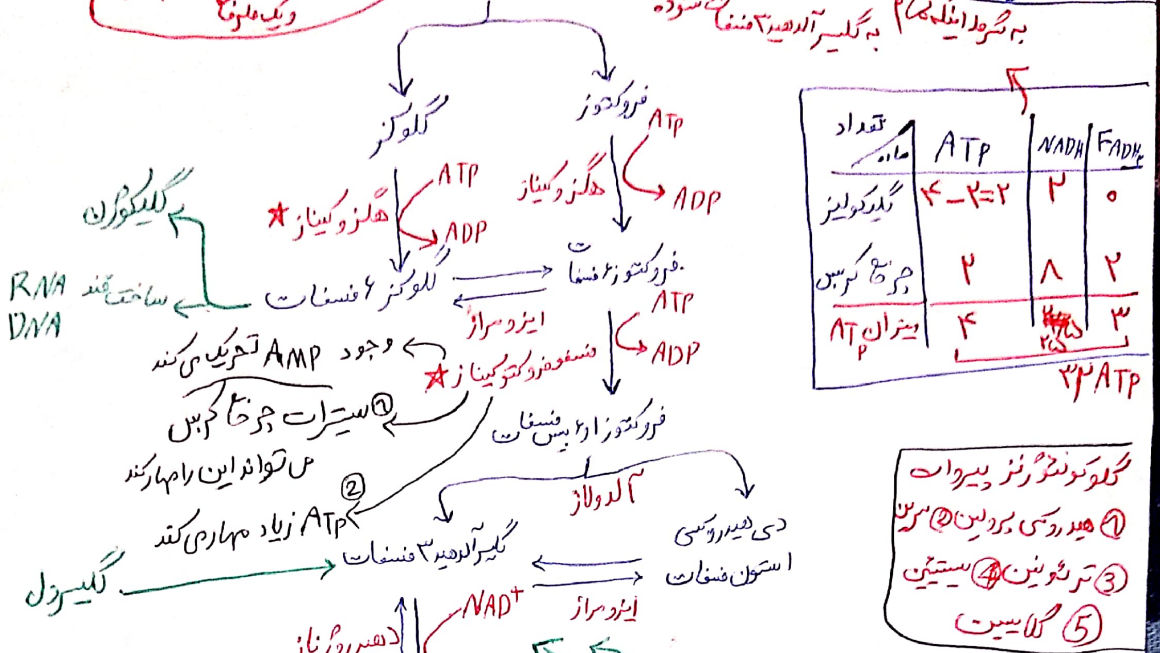 و یک
به گلیسرآلدهید ۳ فسفات
گلوکز
فروکتوز
ATP
ADP
هگزوکیناز
ATP
ADP
هگزوکیناز ★
گلیکوژن
RNA
DNA
ساخت قند
گلوکز ۶ فسفات
فروکتوز ۶ فسفات
ایزومراز
ATP
ADP
فسفوفروکتوکیناز ★
وجود AMP تحریک می‌کند
① سیترات چرخه کربس
می‌تواند این را مهار کند
② ATP زیاد مهار می‌کند
فروکتوز ۱و۶ بیس فسفات
آلدولاز
گلیسرآلدهید ۳ فسفات
دی هیدروکسی
استون فسفات
ایزومراز
گلیسرول
NAD+
دهیدروژناز
تعداد
ماده
ATP NADH FADH₂
گلیکولیز ۴-۲=۲ ۲ ۰
چرخه کربس ۲ ۸ ۲
میزان ATP ۴ ۲۵ ۳
۳۲ ATP
گلوکونئوژنز پیروات
① هیدروکسی پرولین ② سرین
③ ترئونین ④ سیستئین
⑤ گلایسین